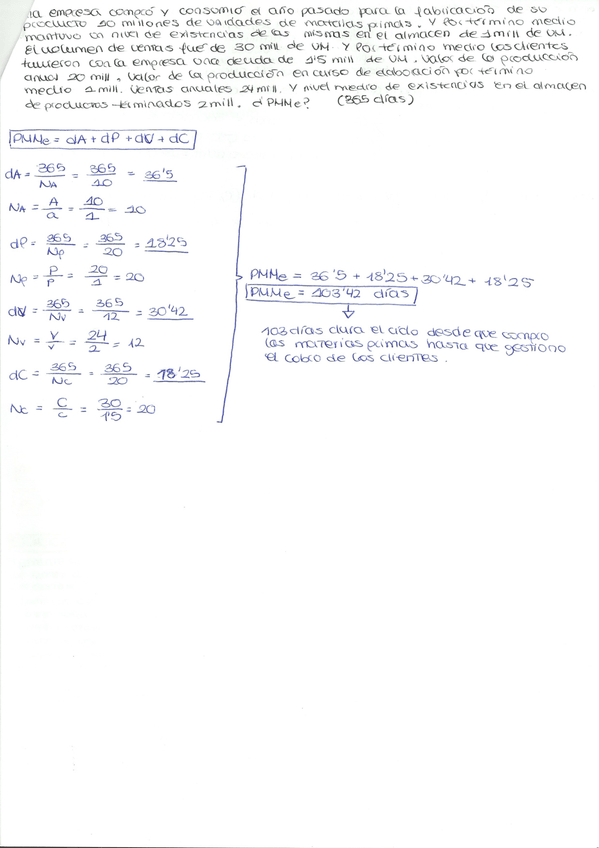 una empresa compró y consumió el año pasado para la fabricación de su
producto 10 millones de unidades de materias primas. Y por término medio
mantuvo un nivel de existencias de las mismas en el almacen de 1 mill de UM.
El volumen de ventas fue de 30 mill de UM. Y por término medio los clientes
tuvieron con la empresa una deuda de 1'5 mill de UM. Valor de la producción
anual 20 mill. Valor de la producción en curso de elaboración por término
medio 1 mill. Ventas anuales 24 mill. Y nivel medio de existencias en el almacen
de productos terminados 2 mill. ¿PMMe? (365 días)
PMMe = dA + dP + dV + dC
dA = 365/NA = 365/10 = 36'5
NA = A/a = 10/1 = 10
dP = 365/Np = 365/20 = 18'25
Np = P/p = 20/1 = 20
dV = 365/Nv = 365/12 = 30'42
Nv = V/v = 24/2 = 12
dC = 365/Nc = 365/20 = 18'25
Nc = C/c = 30/1'5 = 20
PMMe = 36'5 + 18'25 + 30'42 + 18'25
PMMe = 103'42 días
103 días dura el ciclo desde que compro
las materias primas hasta que gestiono
el cobro de los clientes.